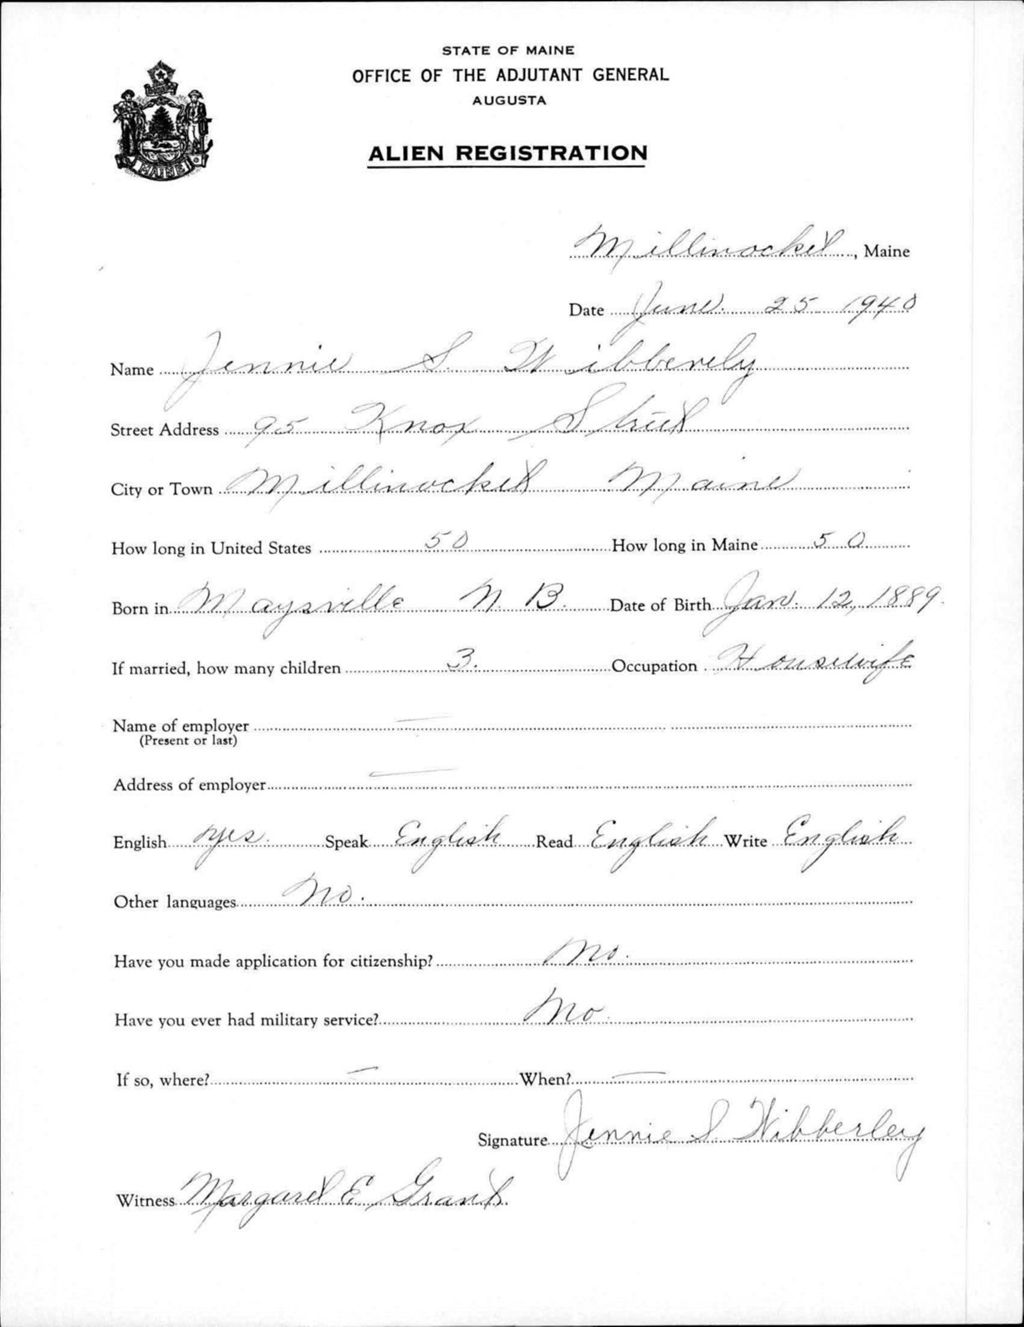 STATE OF MAINE
OFFICE OF THE ADJUTANT GENERAL
AUGUSTA
ALIEN REGISTRATION
MAINE
Millinocket, Maine
Date June 25 1940
Name Jennie S. Wibberely
Street Address 95 Knox Street
City or Town Millinocket Maine
How long in United States 50 How long in Maine 50
Born in Maysville N. B. Date of Birth Jan. 12, 1889.
If married, how many children 3. Occupation Housewife
Name of employer —
(Present or last)
Address of employer —
English Yes. Speak English Read English Write English
Other languages No.
Have you made application for citizenship? No.
Have you ever had military service? No.
If so, where? — When? —
Signature Jennie S Wibberley
Witness Margaret E. Grant